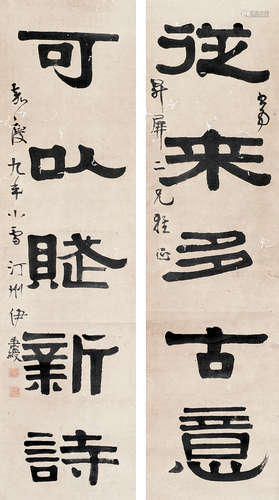 従来多古意
可以賦新詩
書為
昇屏二兄雅正
嘉慶九年小雪汀州伊秉綬